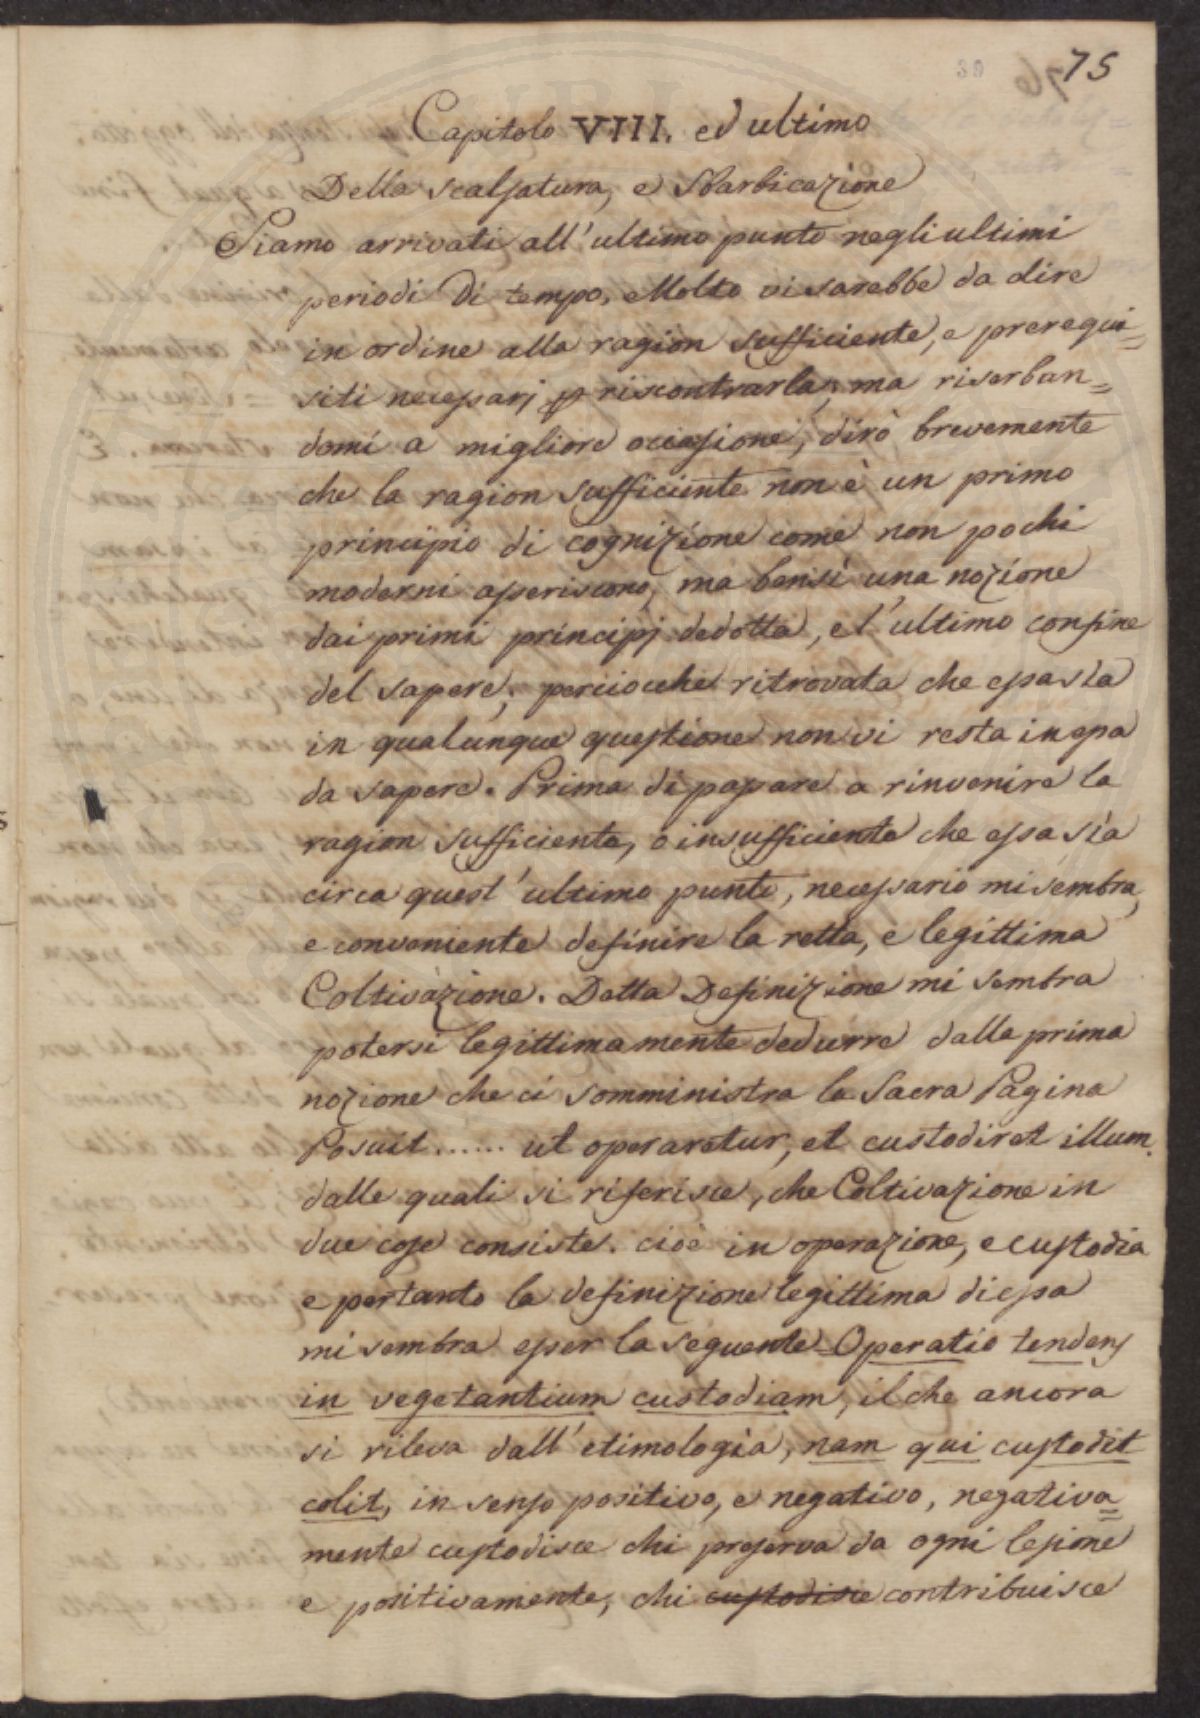 75
39
Capitolo VIII. ed ultimo
Della scalsatura, e Sbarbicazione
Siamo arrivati all'ultimo punto negli ultimi
periodi di tempo. Molto vi sarebbe da dire
in ordine alla ragion sufficiente, e prerequi=
siti necessarj p riscontrarla, ma riserban=
domi a migliore occasione, dirò brevemente
che la ragion sufficiente non è un primo
principio di cognizione come non pochi
moderni asseriscono, ma bensì una nozione
dai primi principj dedotta, e l'ultimo confine
del sapere; perciocche ritrovata che essa sia
in qualunque questione non vi resta in essa
da sapere. Prima di passare a rinvenire la
ragion sufficiente, o insufficiente che essa sia
circa quest'ultimo punto, necessario mi sembra,
e conveniente definire la retta, e legittima
Coltivazione. Detta Definizione mi sembra
potersi legittimamente dedurre dalla prima
nozione che ci somministra la Sacra Pagina
Posuit ...... ut operaretur, et custodiret illum.
dalle quali si riferisce, che Coltivazione in
due cose consiste. cioè in operazione, e custodia
e pertanto la definizione legittima di essa
mi sembra esser la seguente Operatio tendens
in vegetantium custodiam, il che ancora
si rileva dall'etimologia, nam qui custodit
colit, in senso positivo, e negativo, negativa=
mente custodisce chi preserva da ogni lesione
e positivamente, chi custodisce contribuisce